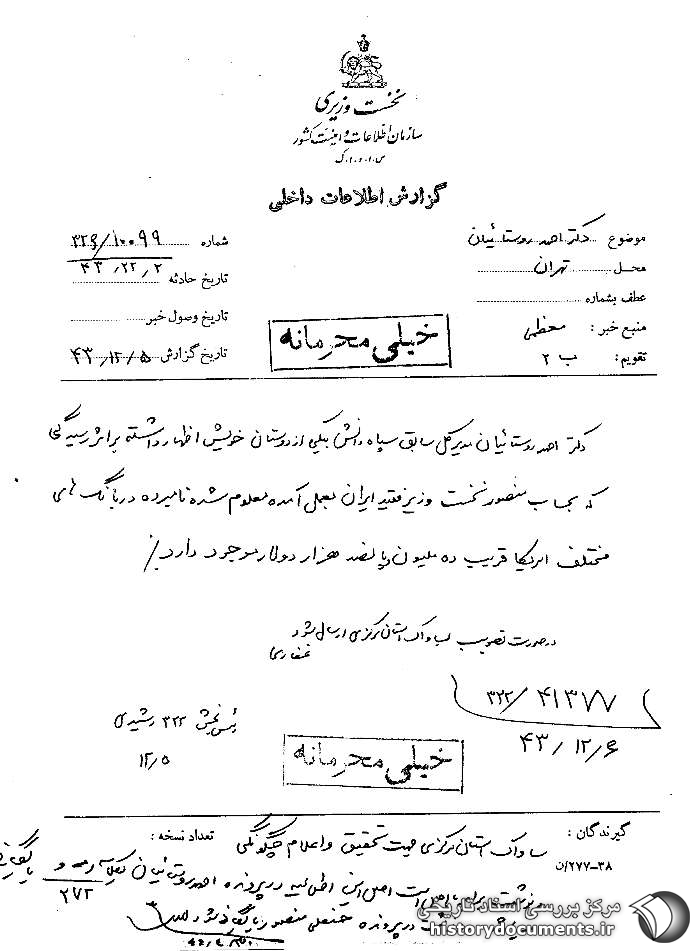 نخست وزیری
سازمان اطلاعات و امنیت کشور
س.ا.و.ا.ک
گزارش اطلاعات داخلی
موضوع دکتر احمد روستائیان
شماره ۳۲۶/۱۰۰۹۹
محل تهران
تاریخ حادثه ۴۳/۲۲/۲
عطف بشماره
تاریخ وصول خبر
منبع خبر :
تقویم : ب ۲
تاریخ گزارش ۴۳/۱۲/۵
خیلی محرمانه
دکتر احمد روستائیان مدیر کل سابق سپاه دانش بیکی از دوستان خویش اظهار داشته بر اثر رسیدگی
که بحساب منصور نخست وزیر فقید ایران بعمل آمده معلوم شده نامبرده در بانک های
مختلف امریکا قریب ده میلیون و پانصد هزار دولار موجود دارد./
در صورت تصویب بساواک استان مرکزی ارسال شود
غفاری
۳۲۲/۴۱۳۷۷
۴۳/۱۲/۶
رئیس بخش ۳۲۲ رشیدی
۱۲/۵
خیلی محرمانه
گیرندگان :
ساواک استان مرکزی جهت تحقیق و اعلام چگونگی
تعداد نسخه :
۳۸-۲۷۷/ن
اصل این اطلاعیه در پرونده احمد روستائیان
۲۷۲
در پرونده حسنعلی منصور بایگانی شود
مرکز بررسی اسناد تاریخی
historydocuments.ir